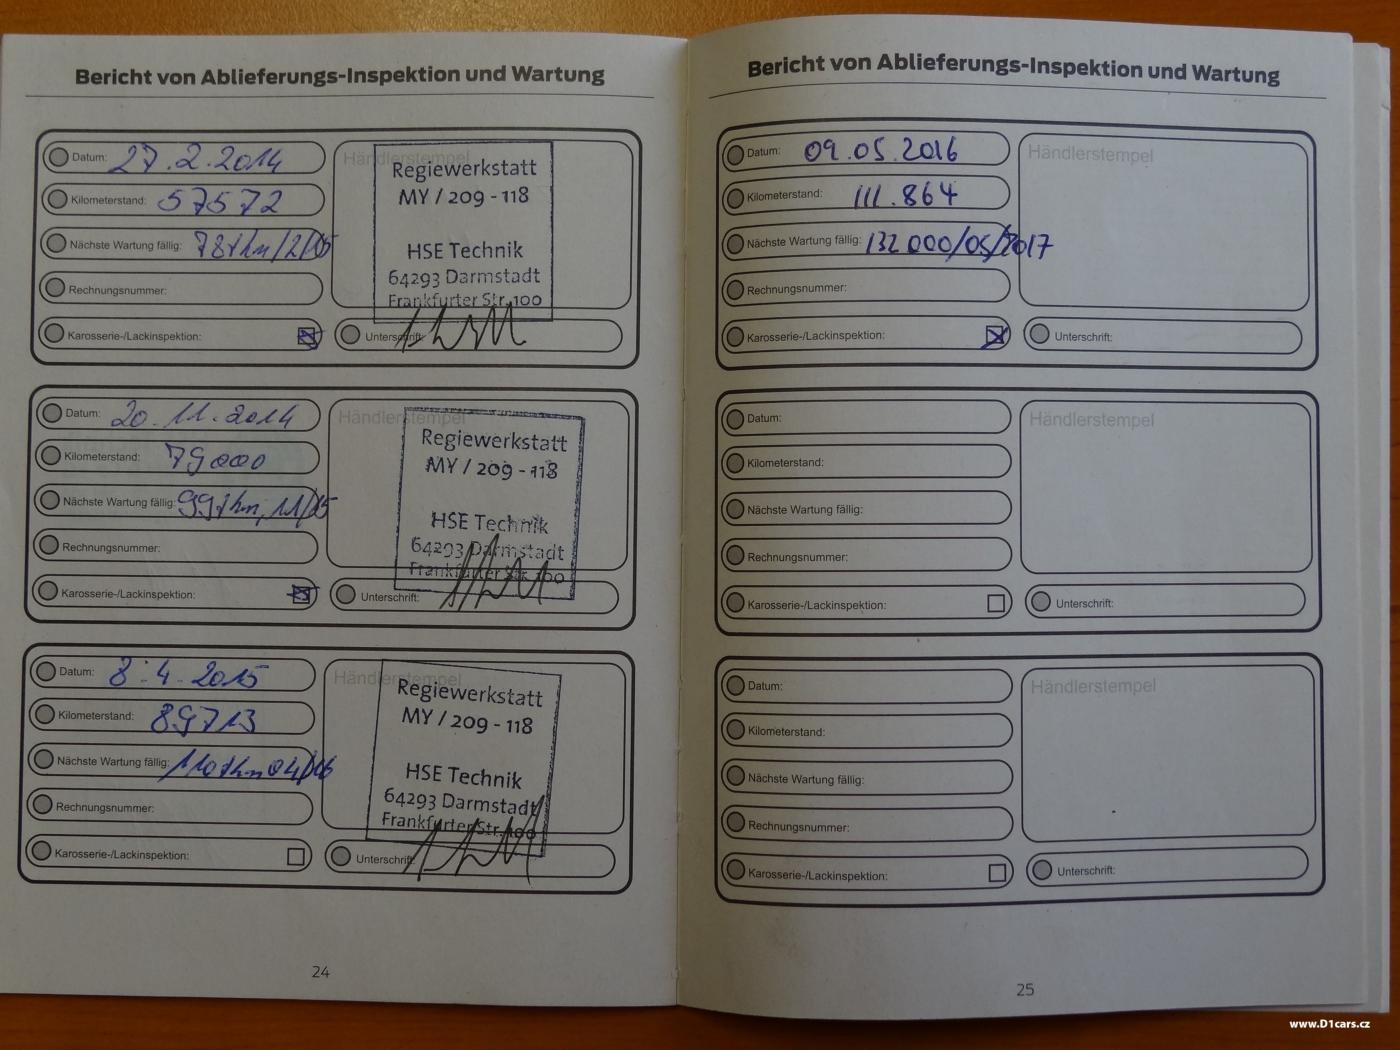 Bericht von Ablieferungs-Inspektion und Wartung
Datum: 27.2.2014
Kilometerstand: 57572
Nächste Wartung fällig: 78tkm/2/15
Rechnungsnummer:
Karosserie-/Lackinspektion:
Händlerstempel
Regiewerkstatt
MY / 209 - 118
HSE Technik
64293 Darmstadt
Frankfurter Str. 100
Unterschrift:
Datum: 20.11.2014
Kilometerstand: 79000
Nächste Wartung fällig: 99tkm, 11/15
Rechnungsnummer:
Karosserie-/Lackinspektion:
Händlerstempel
Regiewerkstatt
MY / 209 - 118
HSE Technik
64293 Darmstadt
Frankfurter Str. 100
Unterschrift:
Datum: 8.4.2015
Kilometerstand: 89713
Nächste Wartung fällig: 110tkm 04/16
Rechnungsnummer:
Karosserie-/Lackinspektion:
Händlerstempel
Regiewerkstatt
MY / 209 - 118
HSE Technik
64293 Darmstadt
Frankfurter Str. 100
Unterschrift:
24
Bericht von Ablieferungs-Inspektion und Wartung
Datum: 09.05.2016
Kilometerstand: 111.864
Nächste Wartung fällig: 132 000/05/2017
Rechnungsnummer:
Karosserie-/Lackinspektion:
Händlerstempel
Unterschrift:
Datum:
Kilometerstand:
Nächste Wartung fällig:
Rechnungsnummer:
Karosserie-/Lackinspektion:
Händlerstempel
Unterschrift:
Datum:
Kilometerstand:
Nächste Wartung fällig:
Rechnungsnummer:
Karosserie-/Lackinspektion:
Händlerstempel
Unterschrift:
25
www.D1cars.cz